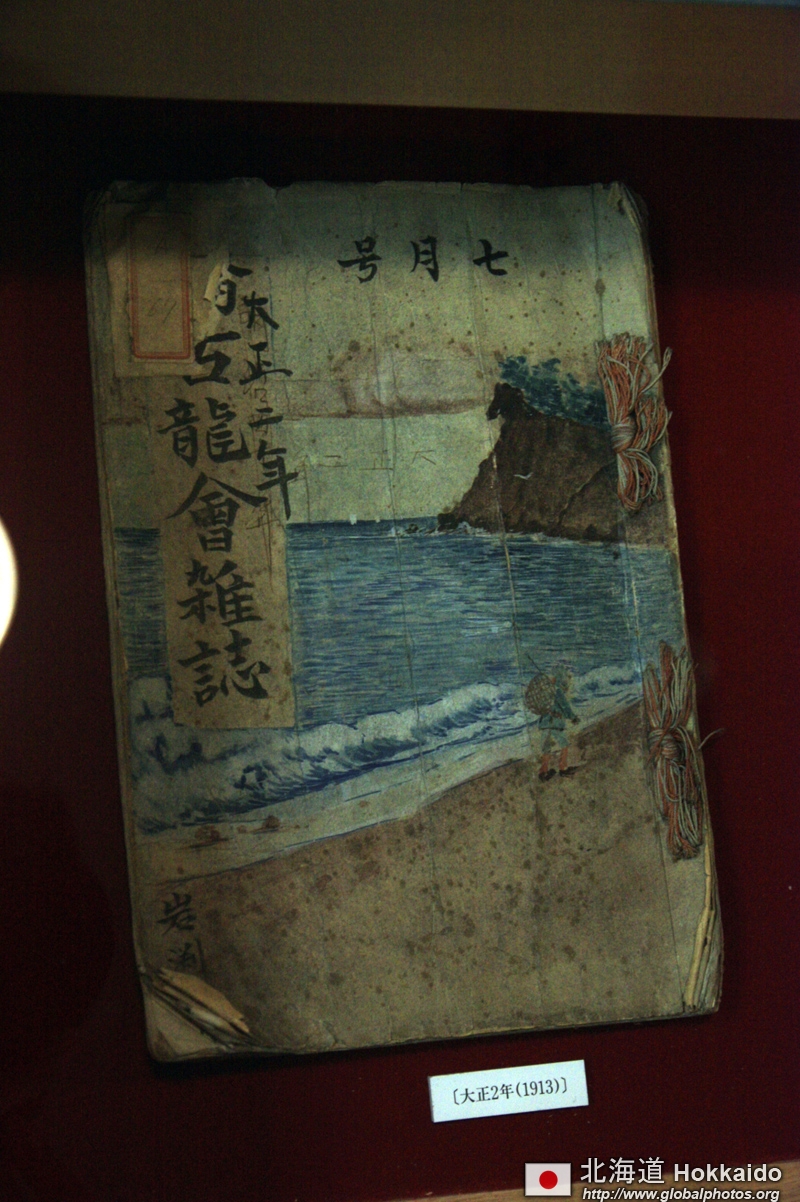 七月号
大正二年
互龍會雑誌
大正二
岩渕
〔大正2年(1913)〕
北海道 Hokkaido
http://www.globalphotos.org